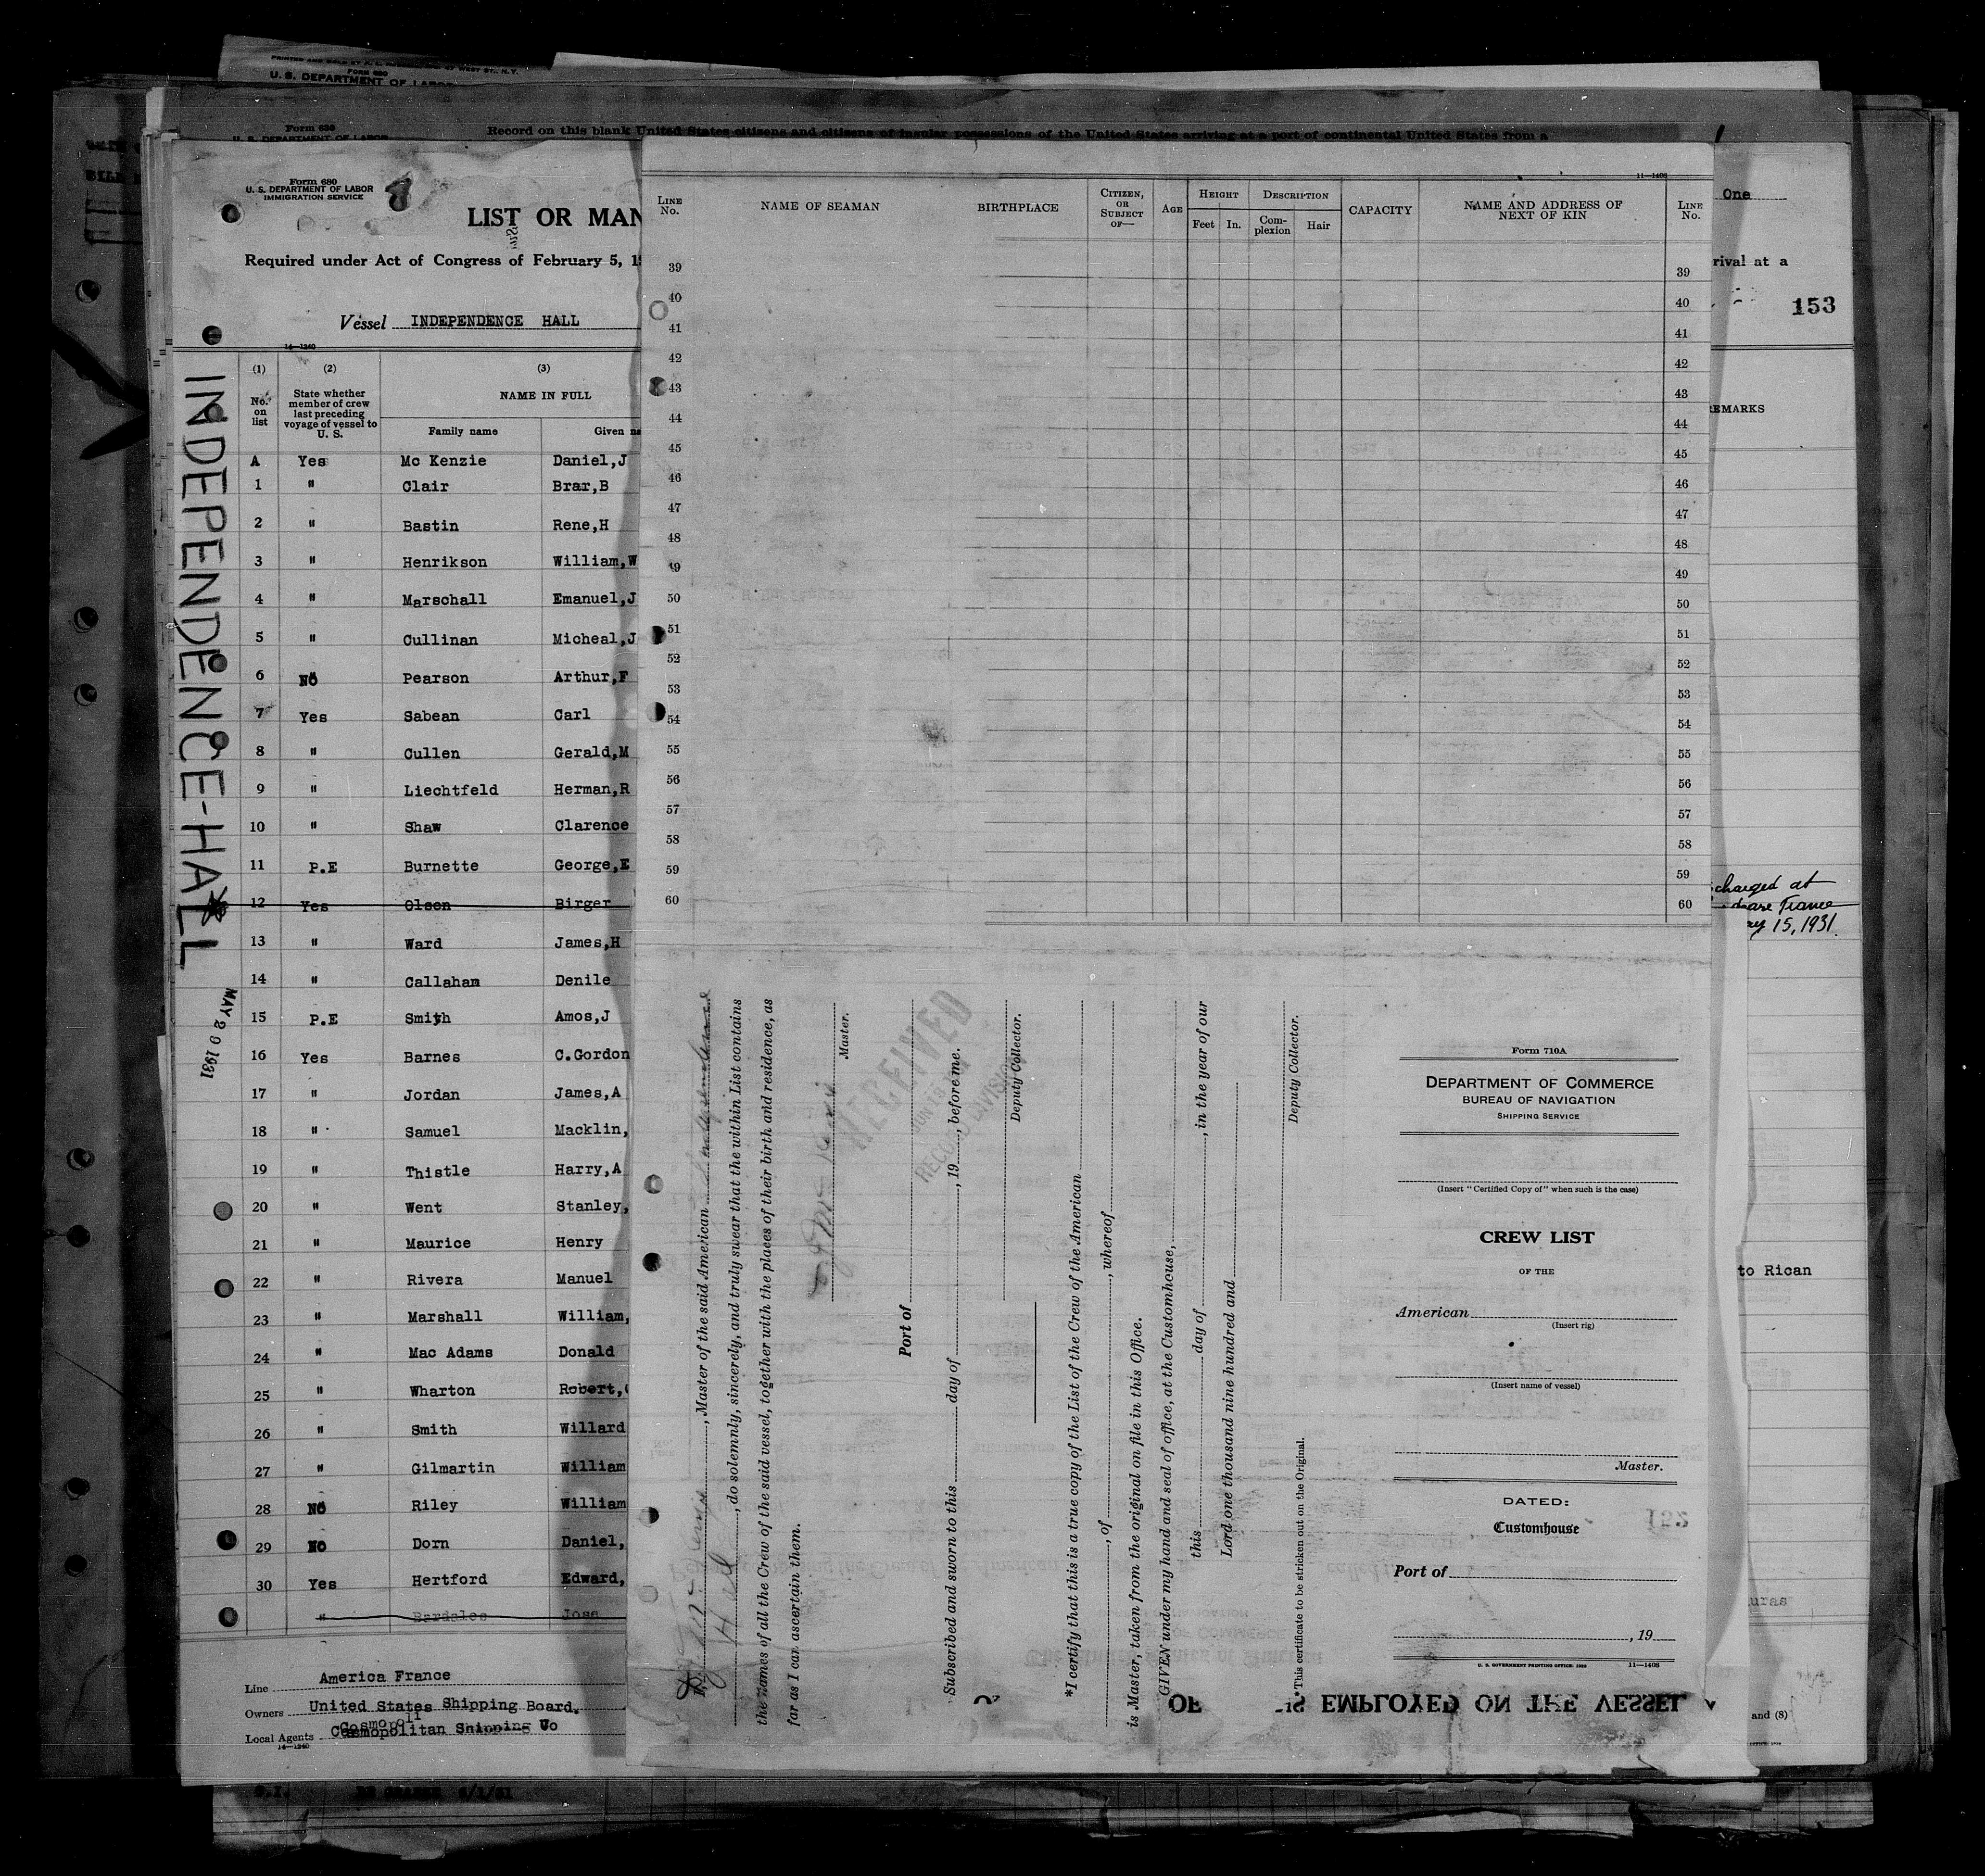 PRINTED AND SOLD BY
WEST ST., N.Y.
FORM 680
U. S. DEPARTMENT OF LABOR
Form 630
U. S. DEPARTMENT OF LABOR
Record on this blank United States citizens and citizens of insular possessions of the United States arriving at a port of continental United States from a
Form 680
U. S. DEPARTMENT OF LABOR
IMMIGRATION SERVICE
LIST OR MAN
Required under Act of Congress of February 5, 19
Vessel INDEPENDENCE HALL
14—1240
(1) (2) (3)
No. on list
State whether member of crew last preceding voyage of vessel to U. S.
NAME IN FULL
Family name Given na
A Yes Mc Kenzie Daniel,J
1 " Clair Brar,B
2 " Bastin Rene,H
3 " Henrikson William,W
4 " Marschall Emanuel,J
5 " Cullinan Micheal,J
6 NO Pearson Arthur,F
7 Yes Sabean Carl
8 " Cullen Gerald,M
9 " Liechtfeld Herman,R
10 " Shaw Clarence
11 P.E Burnette George,E
12 Yes Olsen Birger
13 " Ward James,H
14 " Callaham Denile
15 P.E Smith Amos,J
16 Yes Barnes C.Gordon
17 " Jordan James,A
18 " Samuel Macklin,
19 " Thistle Harry,A
20 " Went Stanley,
21 " Maurice Henry
22 " Rivera Manuel
23 " Marshall William,
24 " Mac Adams Donald
25 " Wharton Robert,
26 " Smith Willard
27 " Gilmartin William
28 NO Riley William
29 NO Dorn Daniel,
30 Yes Hertford Edward,
" Bardales Jose
Line America France
Owners United States Shipping Board.
Local Agents Cosmopolitan Shipping Co
14—1240
INDEPENDENCE-HALL
MAY 29 1931
11—1408
LINE No.
NAME OF SEAMAN
BIRTHPLACE
CITIZEN, OR SUBJECT OF—
AGE
HEIGHT
Feet In.
DESCRIPTION
Complexion Hair
CAPACITY
NAME AND ADDRESS OF NEXT OF KIN
LINE No.
39 39
40 40
41 41
42 42
43 43
44 44
45 45
46 46
47 47
48 48
49 49
50 50
51 51
52 52
53 53
54 54
55 55
56 56
57 57
58 58
59 59
60 60
, Master of the said American
, do solemnly, sincerely, and truly swear that the within List contains
the names of all the Crew of the said vessel, together with the places of their birth and residence, as
far as I can ascertain them.
Master.
RECEIVED
RECORD DIVISION
Port of
Subscribed and sworn to this day of , 19 , before me.
Deputy Collector.
*I certify that this is a true copy of the List of the Crew of the American
, of , whereof
is Master, taken from the original on file in this Office.
GIVEN under my hand and seal of office, at the Customhouse,
this day of , in the year of our
Lord one thousand nine hundred and
Deputy Collector.
*This certificate to be stricken out on the Original.
Form 710A
DEPARTMENT OF COMMERCE
BUREAU OF NAVIGATION
SHIPPING SERVICE
(Insert "Certified Copy of" when such is the case)
CREW LIST
OF THE
American
(Insert rig)
(Insert name of vessel)
Master.
DATED:
Customhouse
Port of
, 19
U. S. GOVERNMENT PRINTING OFFICE 11—1408
OF
EMPLOYED ON THE VESSEL
152
One
rival at a
153
REMARKS
charged at
France
ay 15, 1931.
to Rican
uras
and (8)